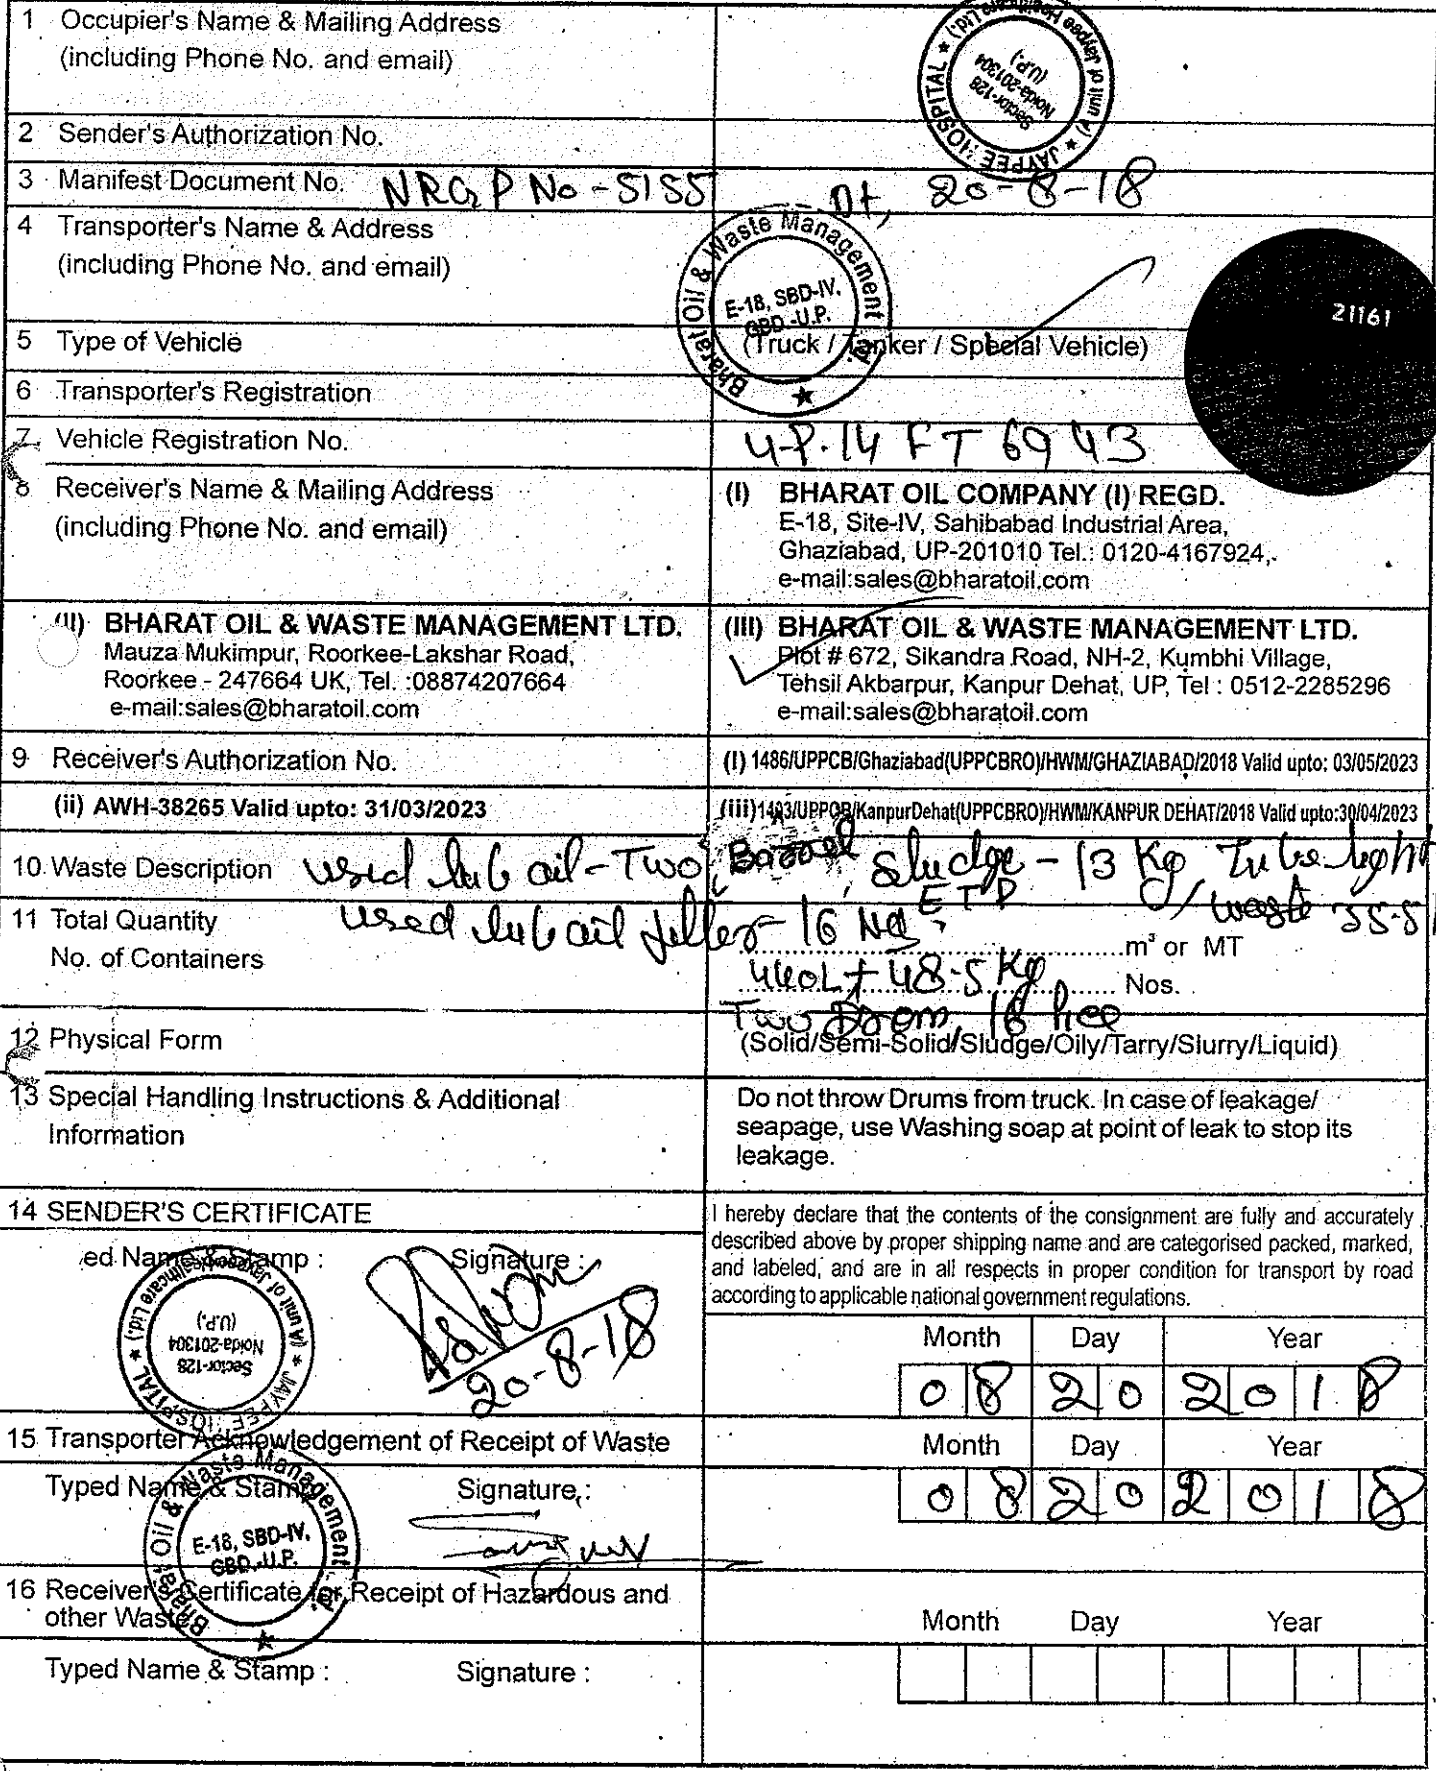 1 Occupier's Name & Mailing Address
(including Phone No. and email)
JAYPEE HOSPITAL ★ (A unit of Jaypee Healthcare Ltd.) ★
Sector-128
Noida-201304
(U.P.)
2 Sender's Authorization No.
3 Manifest Document No. NRGP No - 5155 Dt, 20-8-18
4 Transporter's Name & Address
(including Phone No. and email)
Bharat Oil & Waste Management Ltd. ★
E-18, SBD-IV,
GBD.-U.P.
21161
5 Type of Vehicle (Truck / Tanker / Special Vehicle)
6 Transporter's Registration
7. Vehicle Registration No. U.P.14 FT 6943
8 Receiver's Name & Mailing Address
(including Phone No. and email)
(I) BHARAT OIL COMPANY (I) REGD.
E-18, Site-IV, Sahibabad Industrial Area,
Ghaziabad, UP-201010 Tel.: 0120-4167924,
e-mail:sales@bharatoil.com
(II) BHARAT OIL & WASTE MANAGEMENT LTD.
Mauza Mukimpur, Roorkee-Lakshar Road,
Roorkee - 247664 UK, Tel. :08874207664
e-mail:sales@bharatoil.com
(III) BHARAT OIL & WASTE MANAGEMENT LTD.
Plot # 672, Sikandra Road, NH-2, Kumbhi Village,
Tehsil Akbarpur, Kanpur Dehat, UP, Tel : 0512-2285296
e-mail:sales@bharatoil.com
9 Receiver's Authorization No. (I) 1486/UPPCB/Ghaziabad(UPPCBRO)/HWM/GHAZIABAD/2018 Valid upto: 03/05/2023
(ii) AWH-38265 Valid upto: 31/03/2023 (iii)1493/UPPCB/KanpurDehat(UPPCBRO)/HWM/KANPUR DEHAT/2018 Valid upto:30/04/2023
10 Waste Description used lub oil - Two Barrel, Sludge - 13 Kg Tube light
ETP waste 35.5
11 Total Quantity used lub oil filter - 16 No, m³ or MT
No. of Containers 440L + 48.5 Kg Nos.
Two Drom, 16 Pice
12 Physical Form (Solid/Semi-Solid/Sludge/Oily/Tarry/Slurry/Liquid)
13 Special Handling Instructions & Additional
Information
Do not throw Drums from truck. In case of leakage/
seapage, use Washing soap at point of leak to stop its
leakage.
14 SENDER'S CERTIFICATE
I hereby declare that the contents of the consignment are fully and accurately
described above by proper shipping name and are categorised packed, marked,
and labeled, and are in all respects in proper condition for transport by road
according to applicable national government regulations.
ed Name & Stamp : Signature :
JAYPEE HOSPITAL ★ (A unit of Jaypee Healthcare Ltd.) ★
Sector-128
Noida-201304
(U.P.)
20-8-18
Month Day Year
08 20 2018
15 Transporter Acknowledgement of Receipt of Waste Month Day Year
Typed Name & Stamp Signature : 08 20 2018
Bharat Oil & Waste Management Ltd. ★
E-18, SBD-IV,
GBD.-U.P.
16 Receiver's Certificate for Receipt of Hazardous and
other Waste Month Day Year
Typed Name & Stamp : Signature :